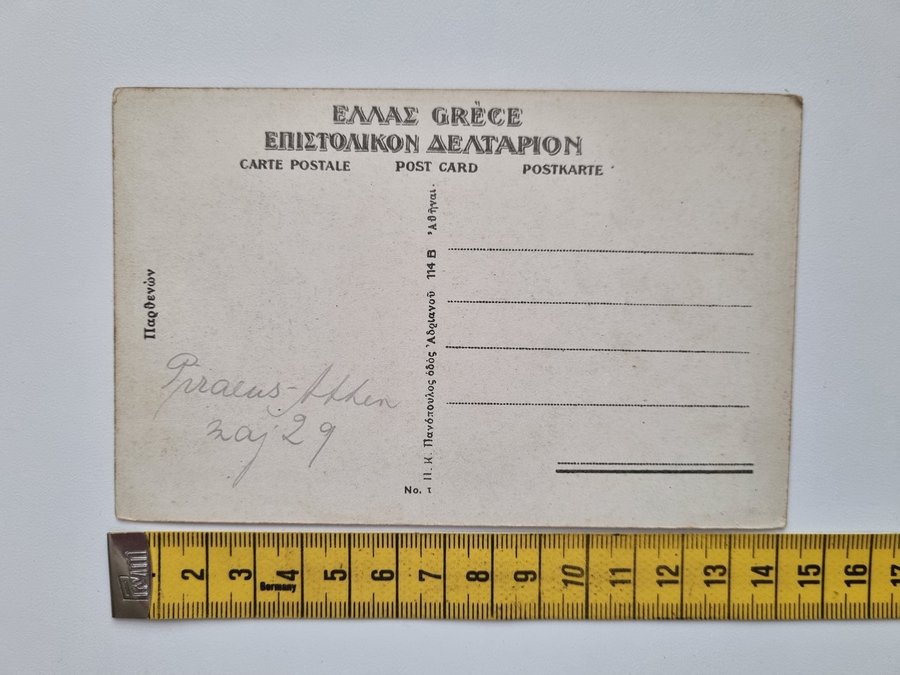 ΕΛΛΑΣ GRÈCE
ΕΠΙΣΤΟΛΙΚΟΝ ΔΕΛΤΑΡΙΟΝ
CARTE POSTALE POST CARD POSTKARTE
Παρθενών
Piraeus-Athen
maj 29
Π. Κ. Πανόπουλος ὁδὸς Ἀδριανοῦ 114 Β Ἀθῆναι.
No. τ
2 3 4 5 6 7 8 9 10 11 12 13 14 15 16 17
Germany